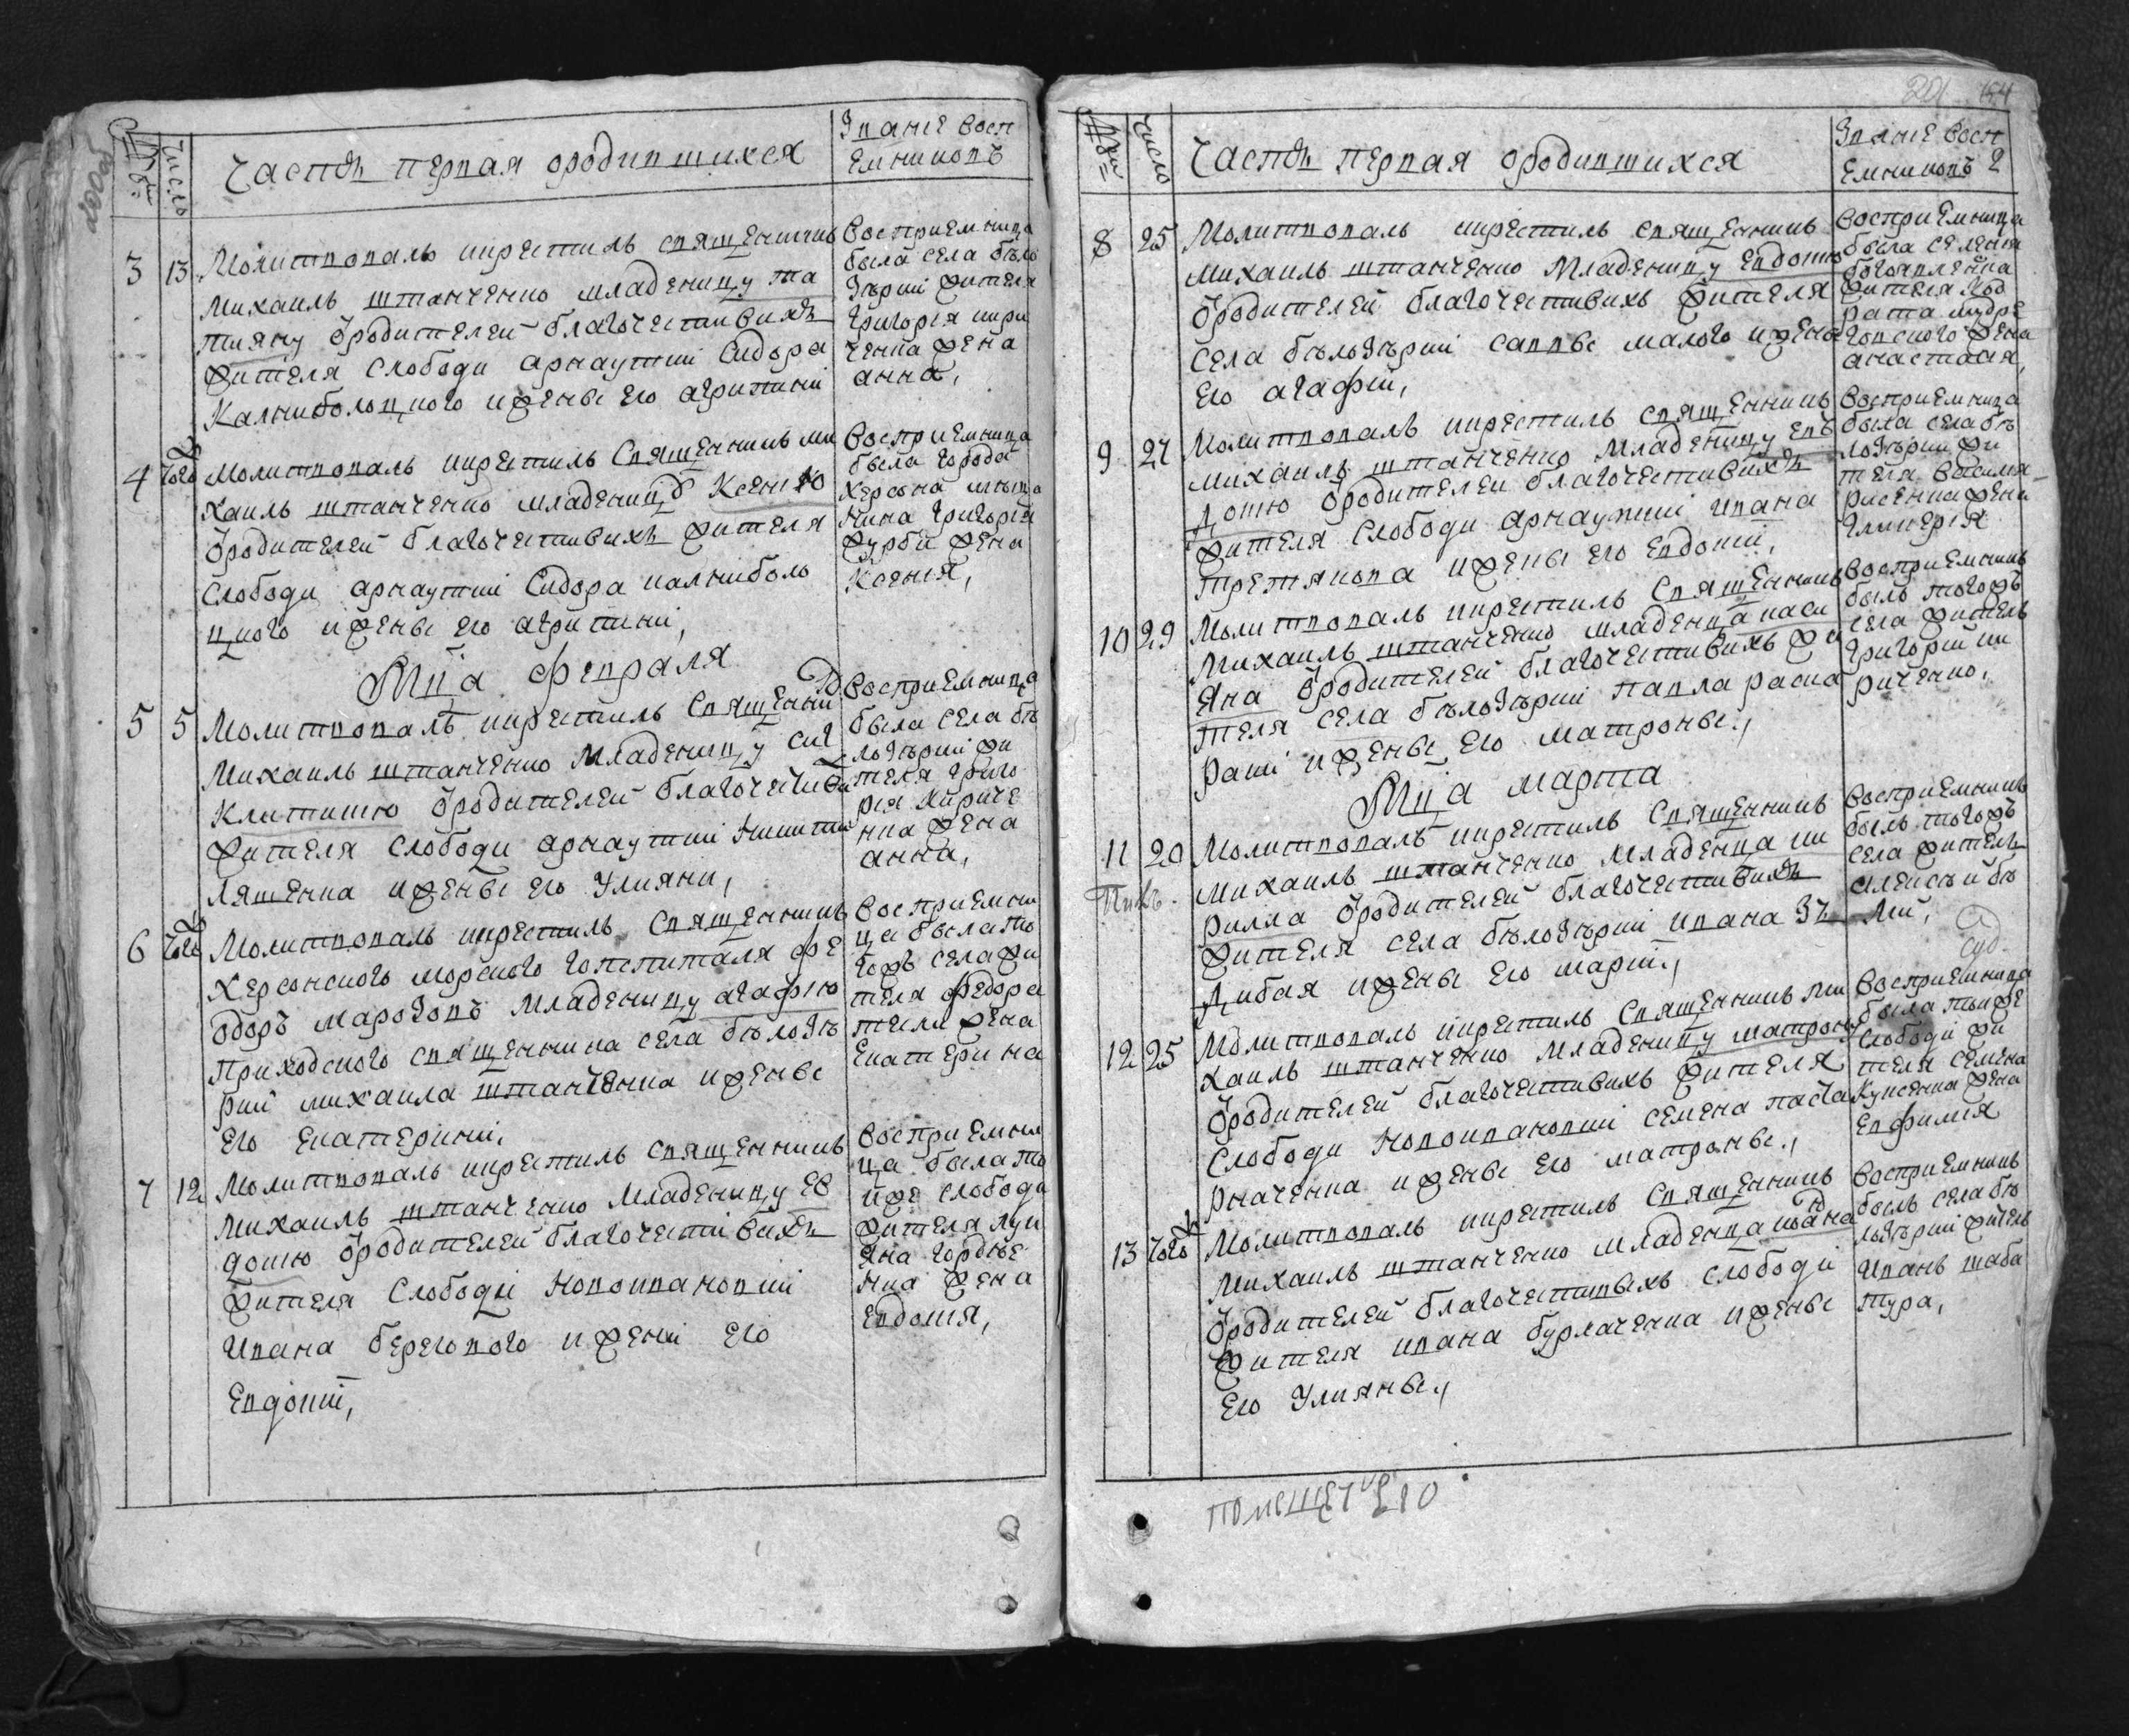 200об
№
Число
Часть первая ородившихся
Званіе восп
емниковъ
3 13 Молитвовалъ икрестилъ священникъ
Михаилъ штанченко младеницу та
тияну ѿродителей благочестивихъ
жителя слободи арнаутки Сидора
Калниболоцкого ижены его агрипини
Восприемница
была села бѣло
зѣрки жителя
григорія кири
ченка жена
анна,
4 того ж Молитвовалъ икрестилъ Священникъ ми
хаилъ штанченко младеницѹ Ксенію
ѿродителей благочестивихъ жителя
Слободи арнаутки Сидора калниболо
цкого ижены его агрипини,
Восприемница
была города
Херсона мещa
нина григорія
жена
Ксенія,
Мца февраля
5 5 Молитвовалъ икрестилъ Священни
Михаилъ штанченко младеницу син
клитикию ѿродителей благочестиви
жителя слободи арнаутки Никити
ляшенка ижены его Улияни,
Восприемница
была села бѣ
лозѣрки жи
теля григо
рія Кириче
нка жена
анна,
6 того ж Молитвовалъ икрестилъ Священникъ
Херсонского морского гопспиталя фе
одоръ марозовъ младеницу агафію
Приходского священника села бѣлозѣ
рки михаила штанченка ижены
его Екатерини,
Восприемни
ца была то
гожъ села жи
теля федора
жена
Екатерина
7 12 Молитвовалъ икрестилъ священникъ
Михаилъ штанченко младеницу ев
докию ѿродителей благочестівихъ
жителя Слободи Новоивановки
Ивана берегового ижени его
Евдокіи,
Восприемни
ца была то
йже слободи
жителя луки
яна гордѣе
нка жена
Евдокія,
201
№
Число
Часть первая ородившихся
Званіе восп
емниковъ 2
8 25 Молитвовалъ икрестилъ священникъ
михаилъ штанченко младеницу Евдокию
ѿродителей благочестивихъ жителя
села бѣлозѣрки саввы малого ижены
его агафіи,
Восприемница
была селенія
богоявленіка
жителя Код
рата мудре
говского жена
анастасія,
9 27 Молитвовалъ икрестилъ священникъ
михаилъ штанченко младеницу Ев
докию ѿродителей благочестивихъ
жителя Слободи арнаутки ивана
третякова ижены его Евдокіи,
Восприемница
была села бѣ
лозѣрки жи
теля василія
рисенка жена
гликерія
10 29 Молитвовалъ икрестилъ Священникъ
Михаилъ штанченко младенца каси
яна ѿродителей благочестивихъ жи
теля села бѣлозѣрки павла расна
раки ижены его матроны.,
Восприемникъ
былъ тогожъ
села житель
григорий ки
риченко,
Мца марта
11 20 Молитвовалъ икрестилъ Священникъ
михаилъ штанченко младенца ки
рилла ѿродителей благочестивихъ
жителя села бѣлозѣрки ивана зъ
дибая ижены его маріи.,
Восприемникъ
былъ тогожъ
села житель
алексѣй бѣ
лий,
12 25 Молитвовалъ икрестилъ Священникъ ми
хаилъ штанченко младеницу матрону
ѿродителей благочестивихъ жителя
Слободи Новоивановки семена паста
рначенка ижены его матроны.,
Восприемница
была тойже
слободи жи
теля семена
Куксенка жена
Евфимія
13 того ж Молитвовалъ икрестилъ Священникъ
михаилъ штанченко младенца иоана
ѿродителей благочестивыхъ слободи
жителя ивана бурлаченка ижены
его Улияны.,
Восприемникъ
былъ села бѣ
лозѣрки житель
Иванъ шаба
тура,